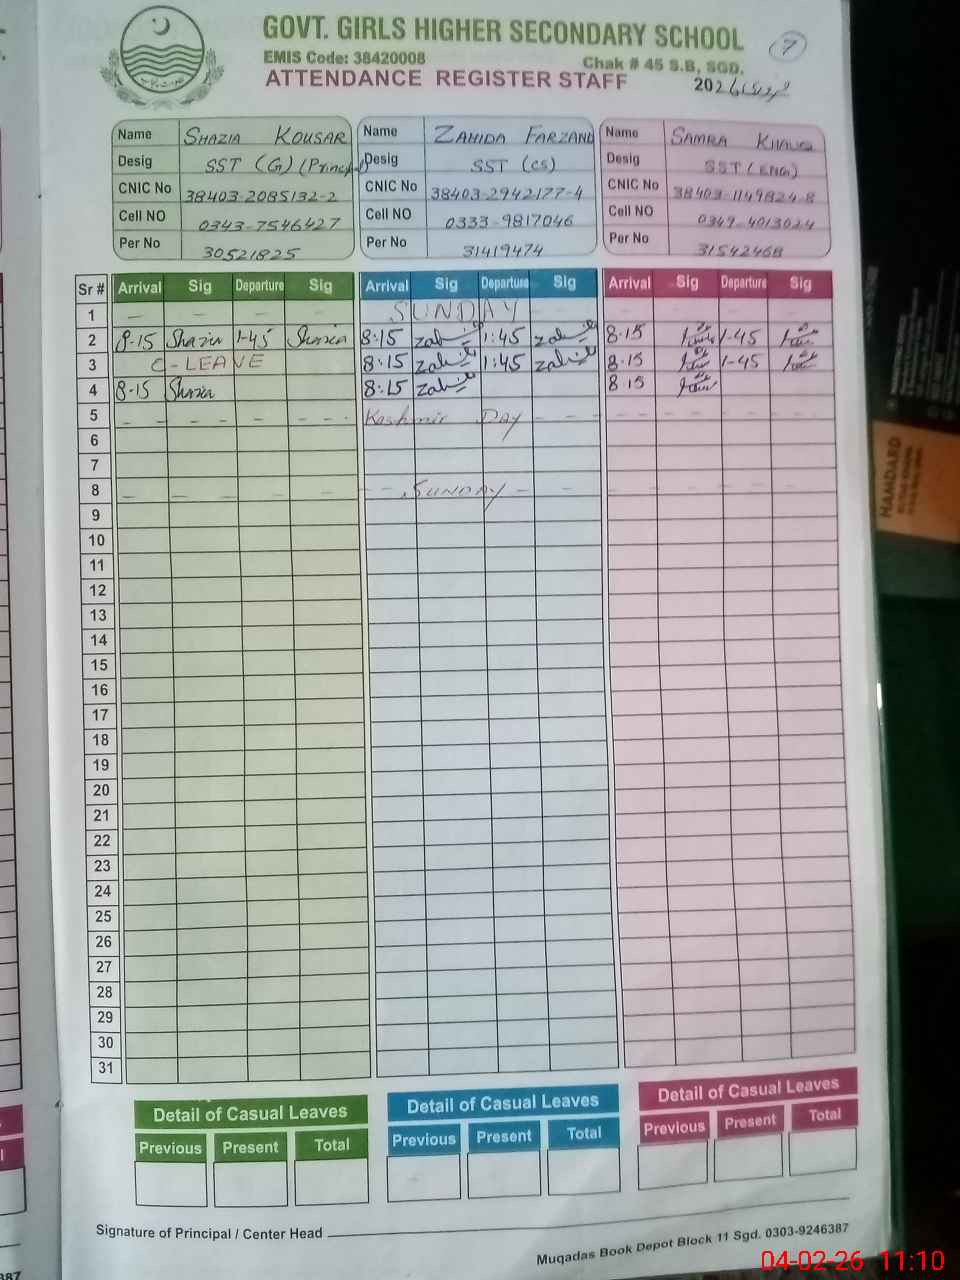 GOVT. GIRLS HIGHER SECONDARY SCHOOL
7
EMIS Code: 38420008
Chak # 45 S.B, SGD.
ATTENDANCE REGISTER STAFF
2026 فروری
Name SHAZIA KOUSAR Name ZAHIDA FARZAND Name SAMRA
Desig SST (G) (Principal) Desig SST (CS) Desig SST (ENG)
CNIC No 38403-2085132-2 CNIC No 38403-2942177-4 CNIC No 38403-1149824-8
Cell NO 0343-7546427 Cell NO 0333-9817046 Cell NO 0349-4013024
Per No 30521825 Per No 31419474 Per No 31542468
Sr # Arrival Sig Departure Sig Arrival Sig Departure Sig Arrival Sig Departure Sig
1 SUNDAY
2 8-15 Shazia 1-45 Shazia 8:15 1:45 8-15 1-45
3 C-LEAVE 8:15 1:45 8-15 1-45
4 8-15 Shazia 8:15 8 15
5 Kashmir Day
6
7
8 SUNDAY
9
10
11
12
13
14
15
16
17
18
19
20
21
22
23
24
25
26
27
28
29
30
31
Detail of Casual Leaves Detail of Casual Leaves Detail of Casual Leaves
Previous Present Total Previous Present Total Previous Present Total
Signature of Principal / Center Head
Muqadas Book Depot Block 11 Sgd. 0303-9246387
04-02-26 11:10
387
HANDARD